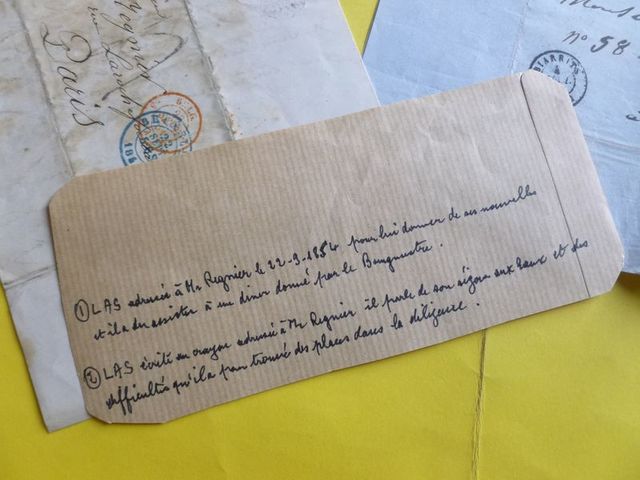 Regnier
rue
Paris
n° 58
BIARRITZ
① LAS adressée à Mr Regnier le 22-9-1854 pour lui donner de ses nouvelles
et il a du assister à un diner donné par le Bourgmestre.
② LAS écrite au crayon adressée à Mr Regnier il parle de son séjour aux Eaux et des
difficultés qu'il a pour trouvé des places dans la diligence.